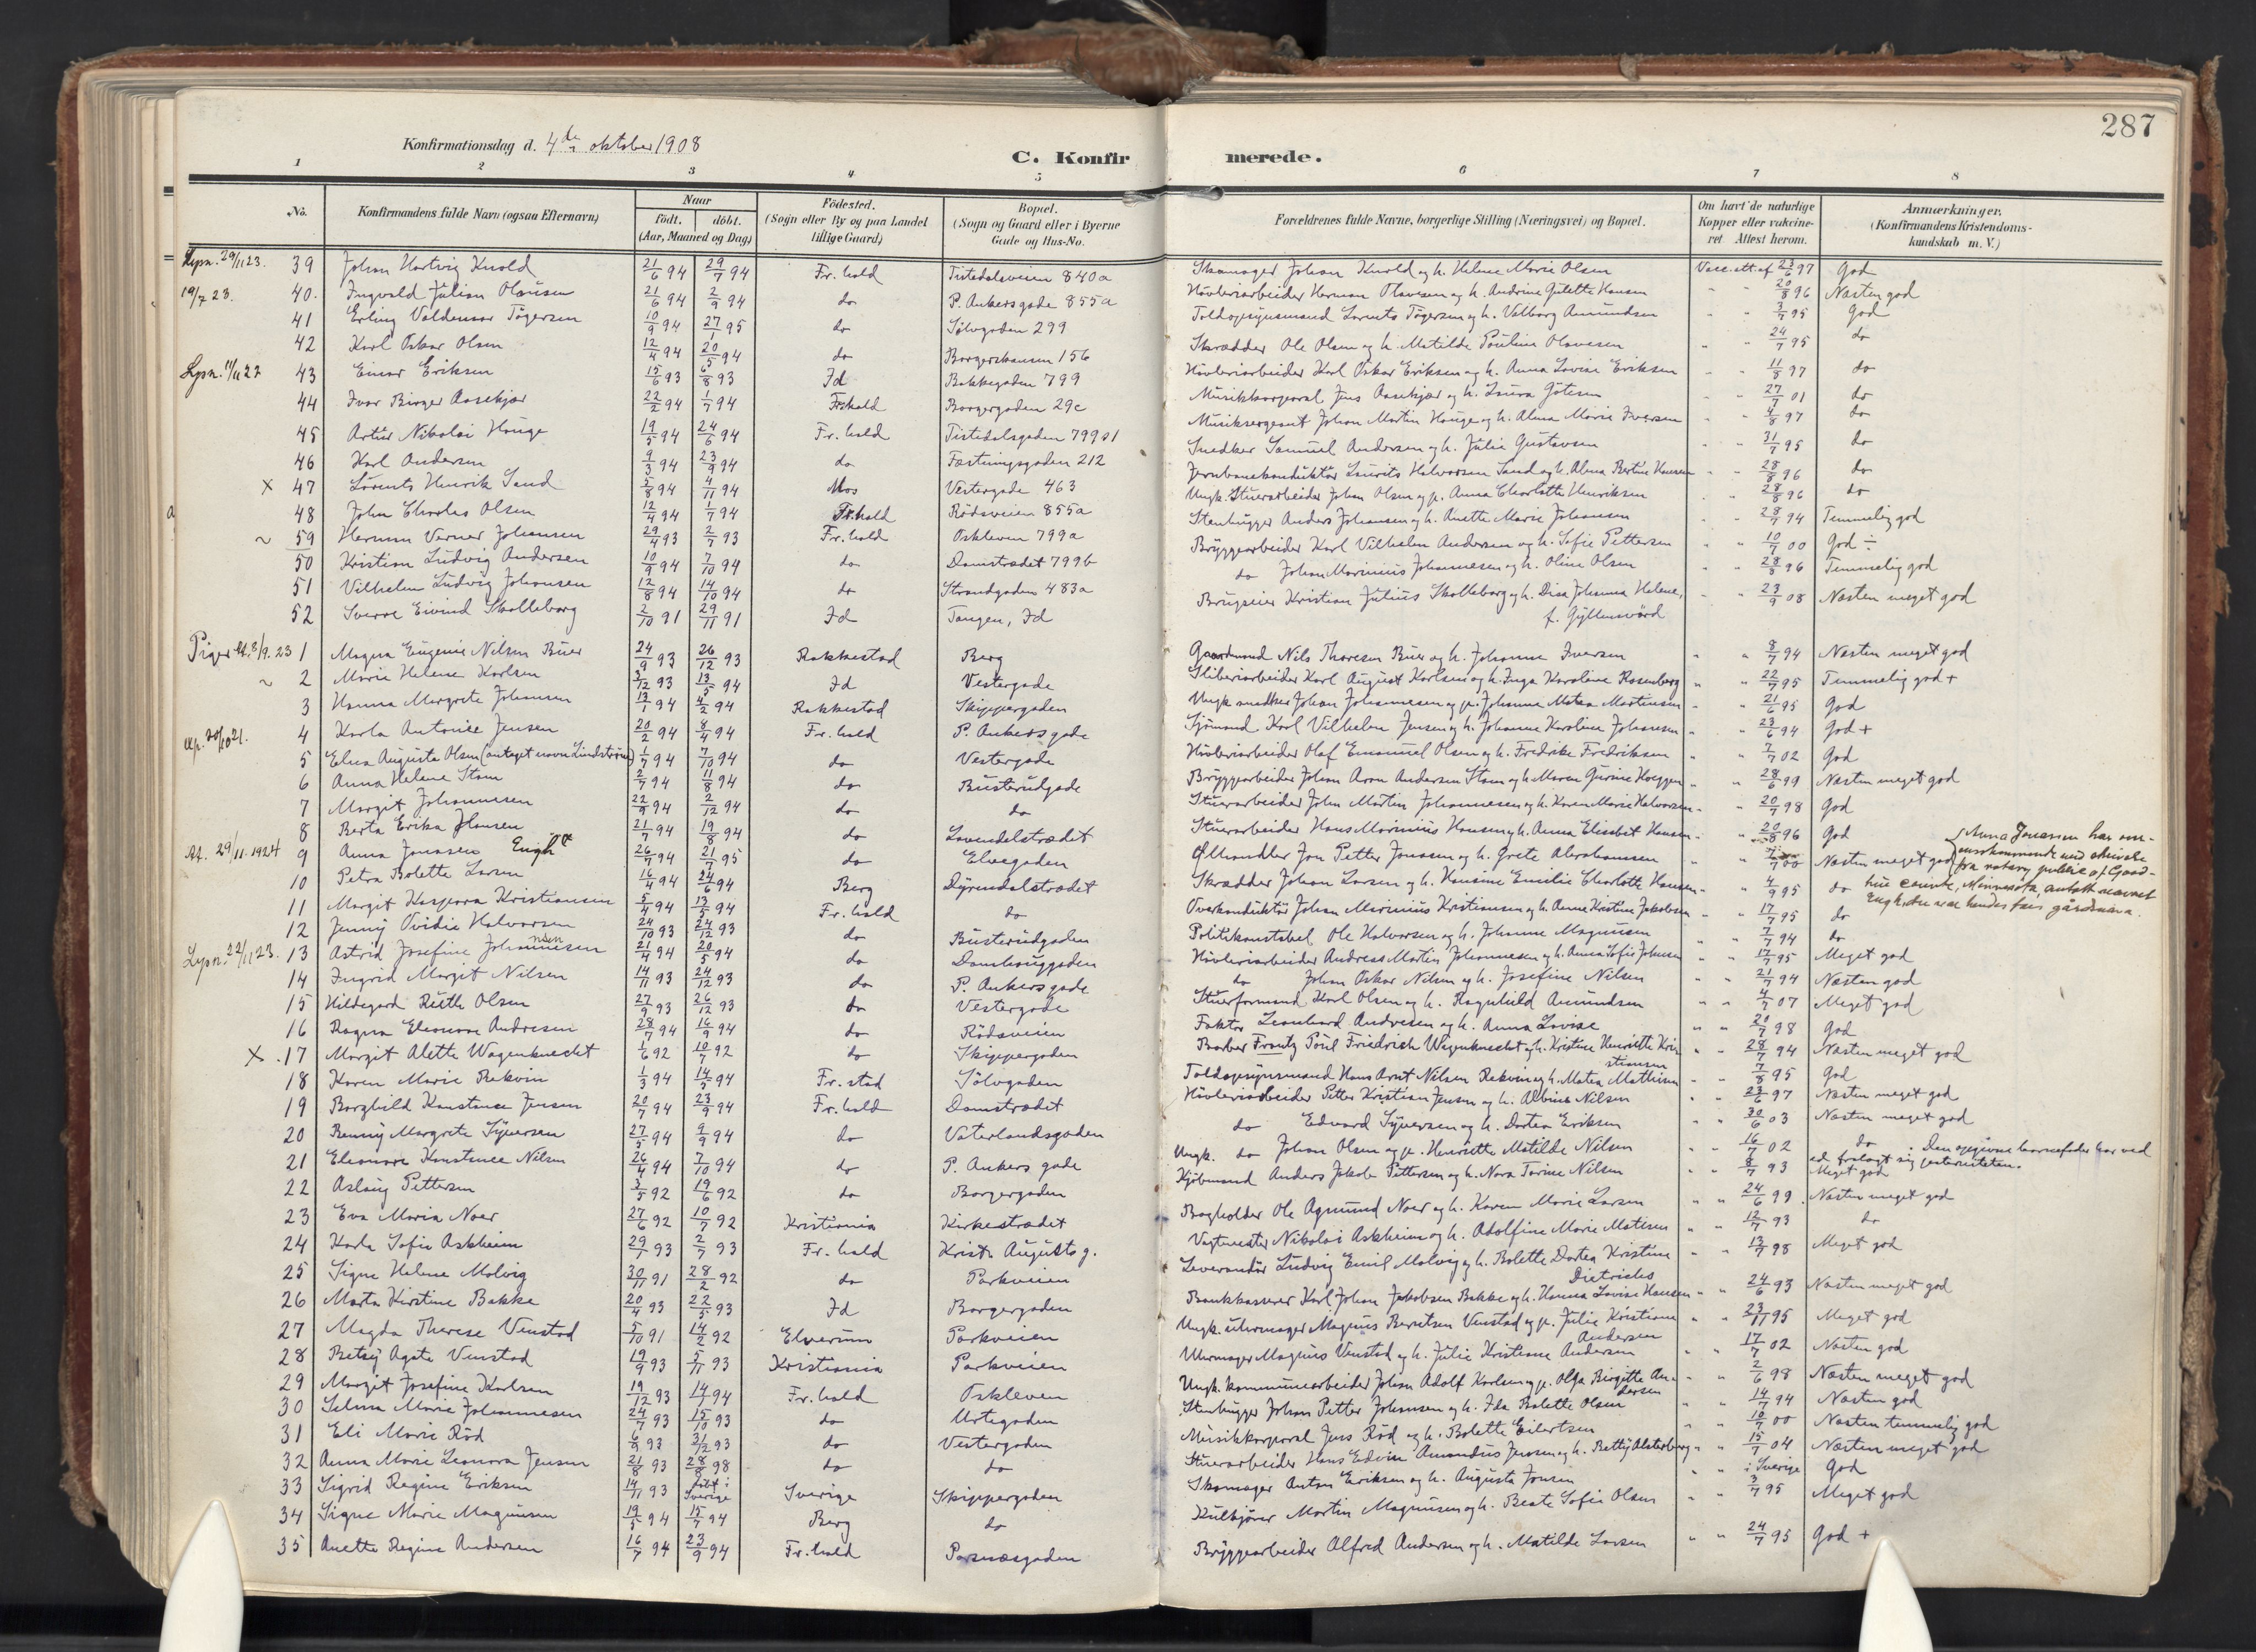 287
Konfirmationsdag d. 4de oktober 1908
C. Konfirmerede.
1 2 3 4 5 6 7 8
No. Konfirmandens fulde Navn (ogsaa Efternavn) Naar født. døbt. (Aar, Maaned og Dag) Fødested. (Sogn eller By og paa Landet tillige Gaard) Bopæl. (Sogn og Gaard eller i Byerne Gade og Hus-No. Forældrenes fulde Navne, borgerlige Stilling (Næringsvei) og Bopæl. Om havt de naturlige Kopper eller vakcineret Attest herom. Anmærkninger. (Konfirmandens Kristendomskundskab m. V.)
Lysn. 29/11 23. 39 Johan Hartvig Knold 21/6 94 29/7 94 Fr.hald Tistedalsveien 840a Skomager Johan Knold og h. Helene Marie Olsen Vacc. att. af 23/6 97 God
19/7 23. 40. Ingvald Julian Olausen 21/6 94 2/9 94 do P. Ankersgade 855a Høvleriarbeider Herman Olavesen og h. Andrine Gulette Hansen " " 20/8 96 Næsten god
41 Erling Valdemar Tøgersen 10/9 94 27/1 95 do Sølvgaden 299 Toldopsynsmand Lornts Tøgersen og h. Valborg Amundsen " " 3/7 95 God
42 Karl Oskar Olsen 12/4 94 20/5 94 do Borgerskansen 156 Skrædder Ole Olsen og h. Matilde Pauline Olavesen " " 24/7 95 do
Lysn. 11/11 22 43 Einar Eriksen 15/6 93 6/8 93 Id Bakkegaden 799 Høvleriarbeider Karl Oskar Eriksen og h. Anna Lovise Eriksen " " 11/8 97 do
44 Ivar Birger Aasekjær 22/2 94 1/7 94 Fr.hald Borgergaden 29c Musikkorporal Jens Aasekjær og h. Laura Gulesen " " 27/7 01 do
45 Artur Nikolai Hauge 19/5 94 24/6 94 Fr.hald Tistedalsgaden 799 Musiksergeant Johan Martin Hauge og h. Alma Marie Iversen " " 4/8 97 do
46 Karl Andersen 9/3 94 23/9 94 do Fæstningsgaden 212 Snedker Samuel Andersen og h. Julie Gustavsen " " 31/7 95 do
x 47 Lorents Henrik Sand 2/8 94 4/11 94 Mos Vestergade 463 Jernbanekonduktør Laurits Halvorsen Sand og h. Alma Bertine Hansen " " 28/8 96 do
48 John Charles Olsen 12/4 94 1/7 94 Fr.hald Rødsveien 855a Ungk. Stuerarbeider Johan Olsen og p. Anna Charlotte Henriksen " " 28/8 96 do
~ 59 Herman Verner Johansen 29/4 93 2/7 93 Fr.hald Oskleven 799a Stenhugger Anders Johansen og h. Anette Marie Johansen " " 28/7 94 Temmelig god
50 Kristian Ludvig Andersen 10/9 94 7/10 94 do Damstrædet 799b Bryggearbeider Karl Vilhelm Andersen og h. Sofie Pettersen " " 10/7 00 God ÷
51 Vilhelm Ludvig Johansen 12/8 94 14/10 94 do Strandgaden 483a do Johan Marinius Johannesen og h. Oline Olsen " " 28/8 96 Temmelig god
52 Sverre Eivind Skolleborg 2/10 91 29/11 91 Id Tangen, Id Brugseier Kristian Julius Skolleborg og h. Dina Johanna Helene, f. Gyllensvärd " " 23/9 08 Næsten meget god
Piger
At. 8/9. 23 1 Magna Eugenie Nilsen Buer 24/9 93 26/12 93 Rakkestad Berg Gaardmand Nils Thoresen Buer og h. Johanne Iversen " " 8/7 94 Næsten meget god
~ 2 Marie Helene Karlsen 3/12 93 13/5 94 Id Vestergade Sliberiarbeider Karl August Karlsen og h. Inga Karoline Rosenberg " " 22/7 95 Temmelig god +
3 Hanna Margrete Johansen 13/1 94 4/2 94 Rakkestad Skippergaden Ungk. snedker Johan Johannesen og p. Johanne Matea Martinsen " " 21/6 95 God
exp. 20/10 21. 4 Karla Antonie Jensen 20/2 94 8/4 94 Fr.hald P. Ankersgade Sjømand Karl Vilhelm Jensen og h. Johanne Karoline Johansen " " 23/6 94 God +
5 Elna Augusta Olsen (antaget navn Lindstrøm) 1/7 94 7/10 94 do Vestergade Høvleriarbeider Olaf Emanuel Olsen og h. Fredrike Fredriksen " " 7/7 02 God
6 Anna Helene Stam 2/7 94 11/8 94 do Busterudgade Bryggearbeider Johan Aron Andersen Stam og h. Maren Gurine Hoeggen " " 28/6 99 Næsten meget god
7 Margit Johannesen 22/9 94 2/12 94 do do Stuerarbeider John Martin Johannesen og h. Karen Marie Halvorsen " " 20/7 98 God
8 Berta Erika Hansen 21/7 94 19/8 94 do Lavendelstrædet Stuerarbeider Hans Marinius Hansen og h. Anna Elisabet Hansen " " 20/8 96 God
At. 29/11. 1924 9 Anna Jonassen Engh 26/7 94 21/7 95 do Elvegaden Ølhandler Jon Petter Jonasen og h. Grete Abrahamsen " " 7/7 00 Næsten meget god { Anna Jonassen har overensstemmende med skrivelse fra notary public af Goodhue county, Minnesota antatt navnet Engh, der var hendes fars gårdsnavn.
10 Petra Bolette Larsen 16/4 94 24/6 94 Berg Dyrendalstrædet Skrædder Johan Larsen og h. Hansine Emilie Charlotte Hansen " " 4/9 95 do
11 Margit Kaspara Kristiansen 5/4 94 13/5 94 Fr.hald do Overkonduktør Johan Marinius Kristiansen og h. Anne Kristine Jakobsen " " 17/7 95 do
12 Jenny Ovidie Halvorsen 24/10 93 24/12 93 do Busterudgaden Politikonstabel Ole Halvorsen og h. Johanne Magnusen " " 7/7 94 do
Lysn. 22/11 23. 13 Astrid Josefine Johannesen 21/4 94 20/5 94 do Damhauggaden Høvleriarbeider Andreas Martin Johannesen og h. Anna Sofie Johnsen " " 17/7 95 Meget god
14 Ingrid Margit Nilsen 14/11 93 24/12 93 do P. Ankersgade do Johan Oskar Nilsen og h. Josefine Nilsen " " 21/7 94 Næsten god
15 Hildegard Ruth Olsen 27/9 93 26/12 93 do Vestergade Stuerformand Karl Olsen og h. Ragnhild Amundsen " " 4/7 07 Meget god
16 Ragna Eleonore Andresen 28/7 94 16/9 94 do Rødsveien Faktor Leonhard Andresen og h. Anna Lovise " " 20/7 98 God
X .17 Margit Alette Wagenknecht 1/6 92 10/7 92 do Skippergaden Barber Frantz Poul Friedrich Wagenknecht og h. Kristine Henriette Kristiansen " " 28/7 94 Næsten meget god
18 Karen Marie Rekvin 1/3 94 14/5 94 Fr.stad Sølvgaden Toldopsynsmand Hans Arnt Nilsen Rekvin og h. Matea Mathisen " " 7/8 95 God
19 Borghild Konstance Jensen 20/7 94 23/9 94 Fr.hald Damstrædet Høvleriarbeider Petter Kristian Jensen og h. Albine Nilsen " " 23/6 97 Næsten meget god
20 Benny Margrete Syversen 27/5 94 9/9 94 do Vaterlandsgaden do Edvard Syversen og h. Dortea Eriksen " " 30/6 03 Næsten meget god
21 Eleonore Konstance Nilsen 26/4 94 7/10 94 do P. Ankers gade Ungk. do Johan Olsen og p. Henriette Matilde Nilsen " " 16/7 02 do Den opgivne barnefader har ved ed fralagt sig paterniteten.
22 Aslaug Pettersen 3/5 92 19/6 92 do Borgergaden Kjøbmand Anders Jakob Pettersen og h. Nora Torine Nilsen " " 8/7 93 Meget god
23 Eva Maria Noer 27/6 92 10/7 92 Kristiania Kirkestrædet Bogholder Ole Agmund Noer og h. Karen Marie Larsen " " 24/6 99 Næsten meget god
24 Karla Sofie Askheim 29/1 93 2/7 93 Fr.hald Krist. Augusts g. Vagtmester Nikolai Askheim og h. Adolfine Marie Matisen " " 12/7 93 do
25 Signe Helene Molvig 30/11 91 28/2 92 do Parkveien Leverandør Ludvig Emil Molvig og h. Bolette Dortea Kristine Dietrichs " " 13/7 98 Meget god
26 Marta Kirstine Bakke 20/4 93 22/5 93 Id Borgergaden Bankkasserer Karl Johan Jakobsen Bakke og h. Hanna Lovise Hansen " " 24/6 93 Næsten meget god
27 Magda Therese Venstad 5/10 91 14/2 92 Elverum Parkveien Ungk. uhrmager Magnus Berntsen Venstad og p. Julie Kristiane Andersen " " 23/11 95 Meget god
28 Betsy Agate Venstad 19/9 93 5/11 93 Kristiania Parkveien Uhrmager Magnus Venstad og h. Julie Kristiane Andersen " " 17/7 02 Næsten god
29 Margit Josefine Karlsen 19/12 93 14/1 94 Fr.hald Oskleven Ungk. kommunearbeider Johan Adolf Karlsen og p. Olga Birgitte Andersen " " 2/6 98 Næsten meget god
30 Selma Marie Johannesen 24/7 93 15/10 93 do Urtegaden Stenhugger Johan Petter Johansen og h. Ida Bolette Olsen " " 14/7 94 Næsten god
31 Eli Marie Rød 6/9 93 31/12 93 do Vestergaden Musikkorporal Jens Rød og h. Bolette Eilertsen " " 10/7 00 Næsten temmelig god
32 Anna Marie Leonora Jensen 21/8 93 28/8 98 do do Stuerarbeider Hans Edvin Amandus Jensen og h. Betty Alsterberg " " 15/7 04 Næsten meget god
33 Sigrid Regine Eriksen 14/11 93 døbt i Sverige Sverige Skippergaden Skomager Anton Eriksen og h. Augusta Jonsen " " i Sverige God
34 Signe Marie Magnusen 19/5 94 15/7 94 Berg do Kulkjører Martin Magnusen og h. Beate Sofie Olsen " " 3/7 95 Meget god
35 Anette Regine Andersen 16/7 94 23/9 94 Fr.hald Porsnæsgaden Bryggearbeider Alfred Andersen og h. Matilde Larsen " " 24/7 95 God +